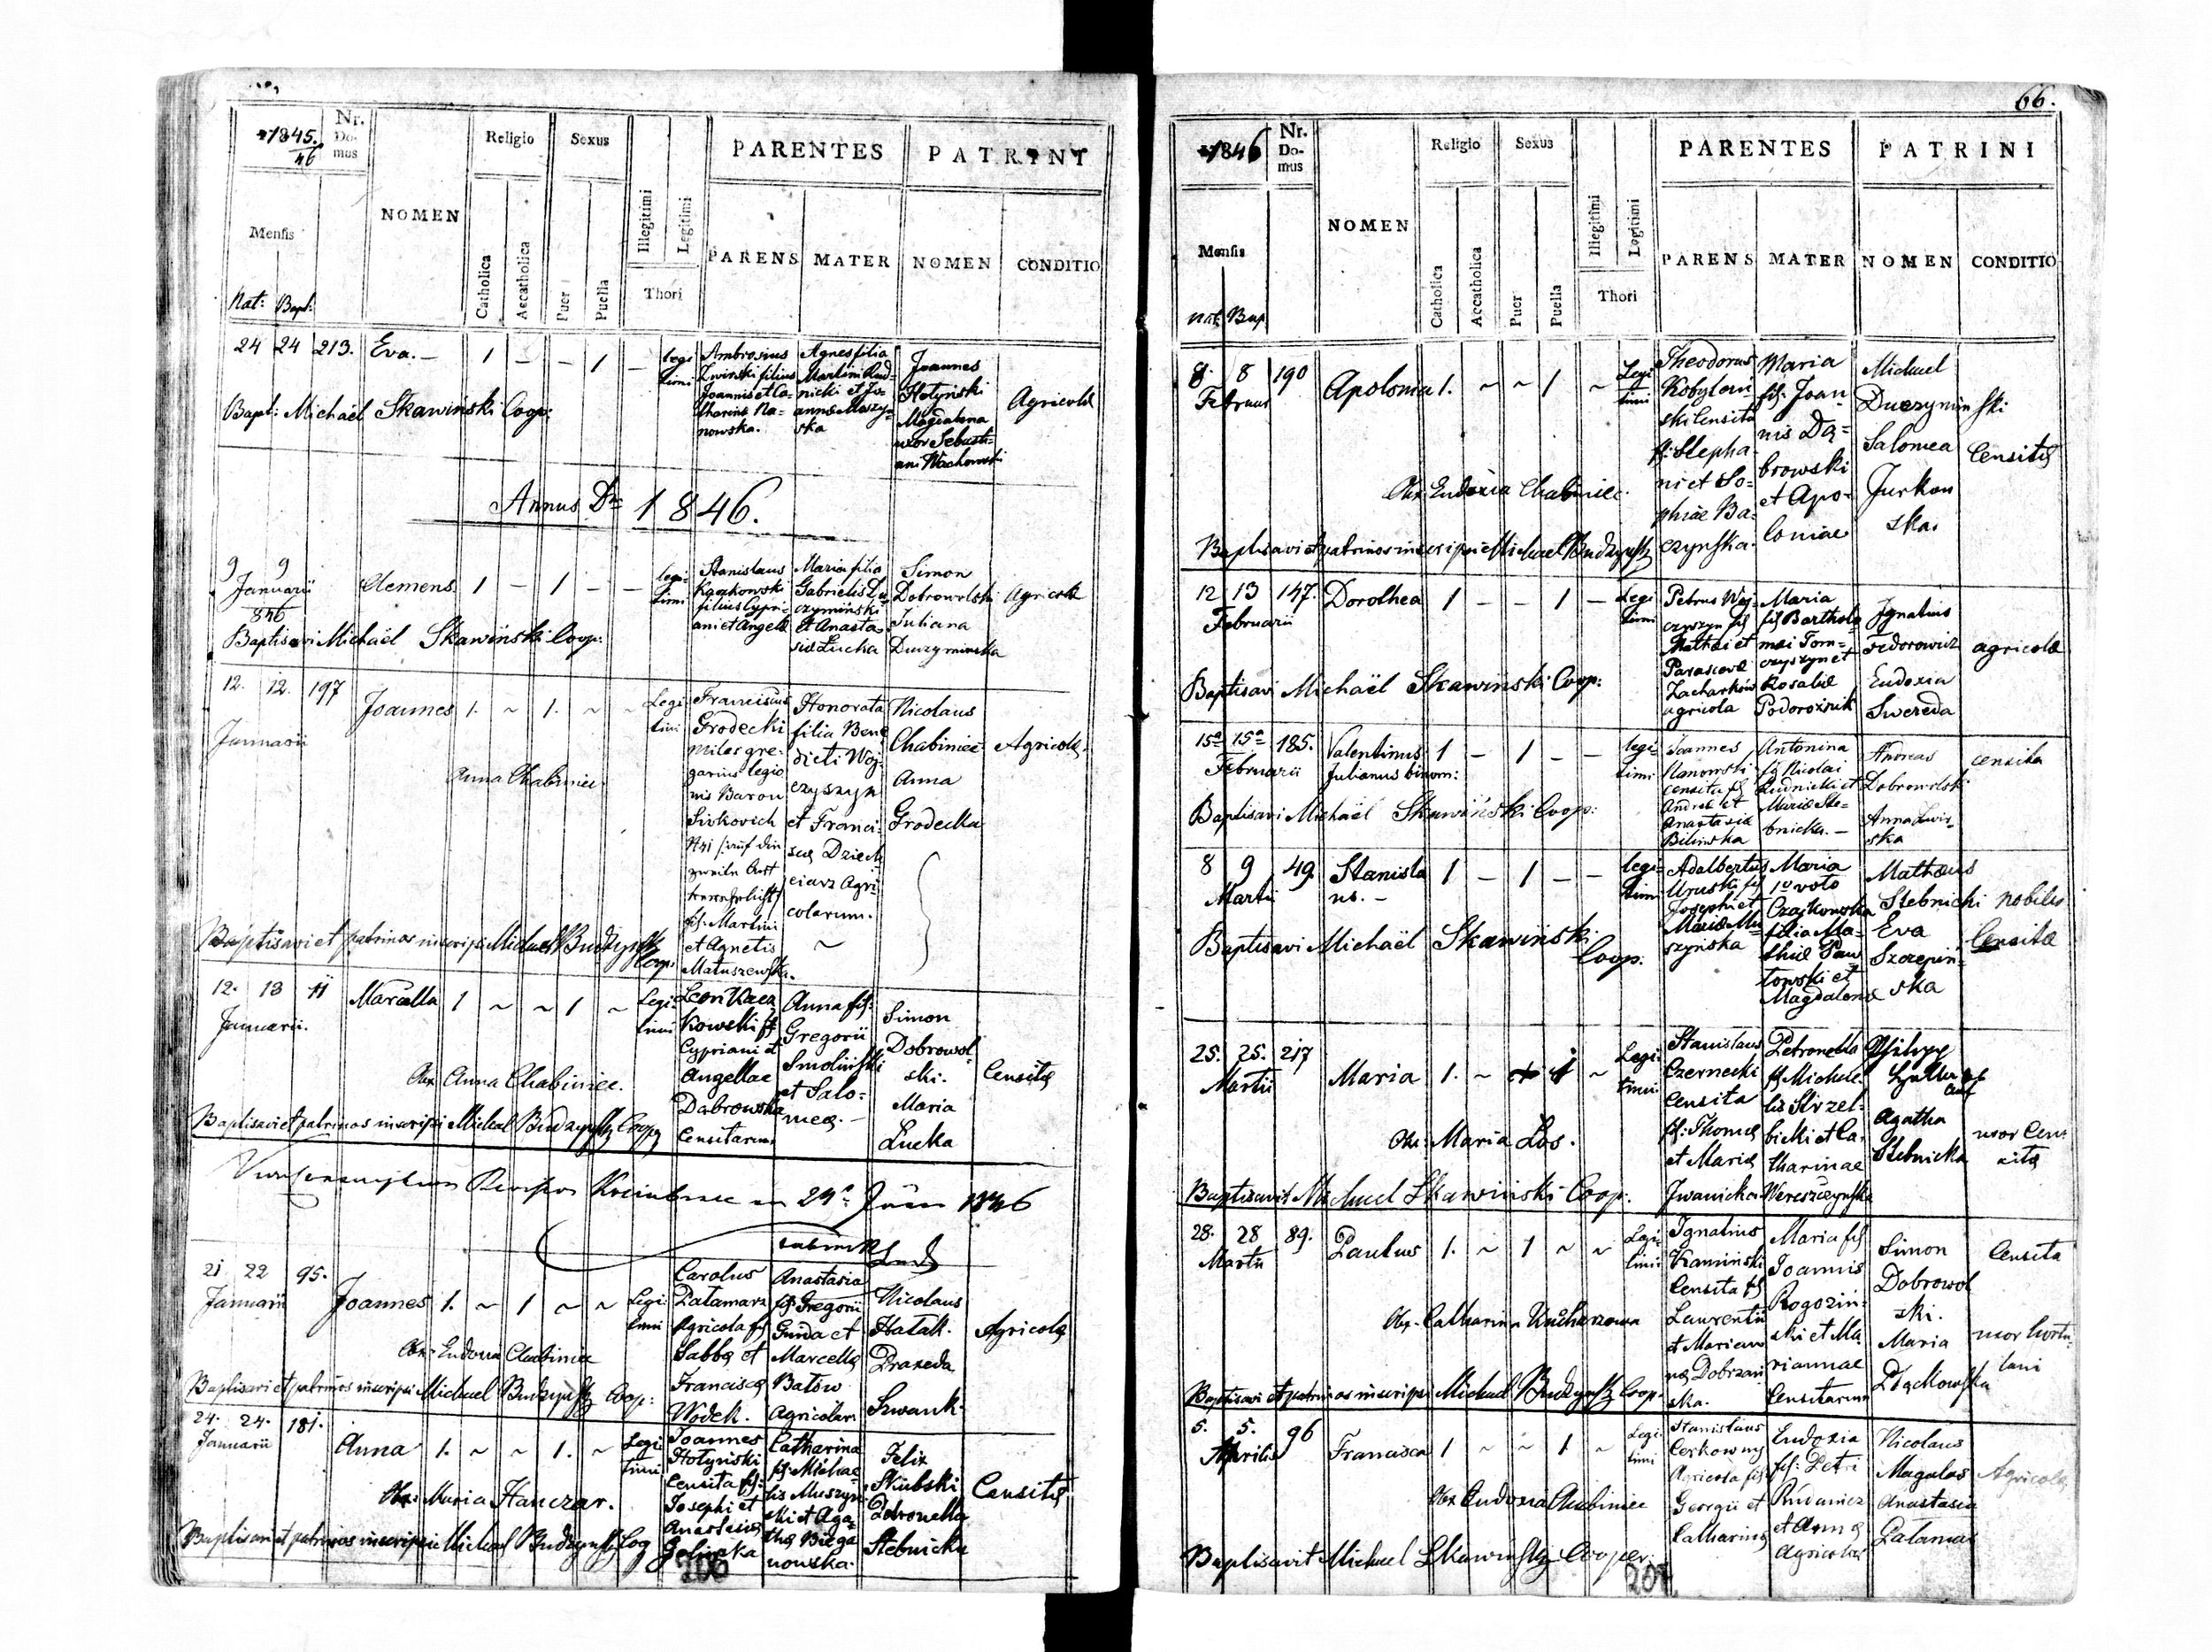 1845.
46
Nr.
Do-
mus
NOMEN
Religio
Sexus
PARENTES
PATRINI
Mensis
Nat: Bapt:
Catholica
Accatholica
Puer
Puella
Illegitimi
Legitimi
Thori
PARENS
MATER
NOMEN
CONDITIO
24 24 213. Eva.– 1 – – 1 –
legi
timi
Ambrosius
Zwinski filius
Joannis et Ca-
tharinæ Na-
nowska.
Agnes filia
Martini Rud-
nicki et Jo-
annæ Muszyn-
ska
Joannes
Hotynski
Magdalena
uxor Sebasti-
ani Wachowski
Agricolæ
Bapt: Michaël Skawiński Coop:
Annus Dni 1846.
9 9
Januarii
846
Clemens. 1 – 1 – –
legi-
timi
Stanislaus
Kaczkowski
filius Cypri-
ani et Angelæ
Maria filia
Gabrielis Du-
czymiński
et Anasta-
siæ Łucka
Simon
Dobrowolski
Juliana
Duczyminska
Agricolæ
Baptisavi Michaël Skawiński Coop:
12. 12. 197
Januarii
Joannes 1. ~ 1. ~ ~
Legi
timi
Franciscus
Grodecki
miles gre-
garius legio
nis Baron
Sivkovich
fil: Martini
et Agnetis
Matuszewska.
Honorata
filia Bene
dicti Woj-
czyszyn
et Franci-
scæ Dziech
ciarz Agri-
colarum.
Nicolaus
Chabiniec
Anna
Grodecka
Agricolæ.
Anna Chabiniec
Baptisavi et patrinos inscripsi Michael Budzynski Coop:
12. 13 11
Januarii.
Marcella 1 ~ ~ 1 ~
Legi-
timi
Leon Kacz
kowski fil
Cypriani et
Angellae
Dabrowska
Censitarum
Anna fil:
Gregorii
Smoliński
et Salo-
meæ.–
Simon
Dobrowol
ski.
Maria
Łucka
Censitæ
Obx Anna Chabiniec.
Baptisavi et patrinos inscripsi Michael Budzynski Coop
1846
21 22 95.
Januarii
Joannes 1. ~ 1 ~ ~
Legi
timi
Carolus
Palamarz
Agricola fil
Sabbæ et
Franciscæ
Wodek.
Anastasia
fil Gregorii
Gnida et
Marcellæ
Batów
Agricolar.
Nicolaus
Hatak.
Praxeda
Szwank
Agricolæ
Obx: Eudoxia Chabiniec
Baptisavi et patrinos inscripsi Michael Budzynski Coop:
24. 24. 181.
Januarii
Anna 1. ~ ~ 1. ~
Legi
timi
Joannes
Hotyński
Censita fil:
Josephi et
Anastasiæ
Catharina
fil: Michae-
lis Muszyn-
ski et Aga-
thæ Biega
nowska.
Felix
Skubski
Petronella
Stebnicka
Censitæ
Obx: Maria Hanczar.
Baptisavi et patrinos inscripsi Michael Budzynski Coop
206
66.
1846
Nr.
Do-
mus
NOMEN
Religio
Sexus
PARENTES
PATRINI
Mensis
nat: Bap
Catholica
Accatholica
Puer
Puella
Illegitimi
Legitimi
Thori
PARENS
MATER
NOMEN
CONDITIO
8. 8 190
Februar
Apolonia 1. ~ ~ 1 ~
Legi
timi
Theodorus
Kobylowi
ski Censita
fil: Stepha
ni et So-
phiæ Ba-
czynska.
Maria
fil: Joan
nis Dą-
browski
et Apo-
loniae
Michael
Duczyminski
Salomea
Jurkow
ska.
Censitæ
Obx Eudoxia Chabiniec.
Baptisavi et patrinos inscripsi Michael Budzynski
12 13 147.
Februarii
Dorothea 1 – – 1 –
Legi
timi
Petrus Woj-
czyszyn fil
Mathæi et
Parascevæ
Zacharków
agricola
Maria
fil Bartholo
mæi Tom-
czyszyn et
Rosaliæ
Podoroznik
Ignatius
Fedorowicz
Eudoxia
Swereda
agricolæ
Baptisavi Michaël Skawiński Coop:
15a 15a 185.
Februarii
Valentinus
Julianus binom:
1 – 1 – –
legi-
timi
Joannes
Nanowski
censita fil
Andreæ et
Anastasiæ
Bilinska
Antonina
fil Nicolai
Rudnicki et
Mariæ Ste-
bnicka.–
Andreas
Dobrowolski
Anna Zwin-
ska
censita
Baptisavi Michaël Skawiński Coop:
8 9 49.
Martii
Stanisla
us.–
1 – 1 – –
legi-
timi
Adalbertus
Uruski fil
Josephi et
Mariæ Mu-
szyńska
Maria
1o voto
Czajkowska
filia Ma-
thiæ Paw
łowski et
Magdalenæ
Mathæus
Stebnicki
Eva
Szczepiń-
ska
nobiles
Censitæ
Baptisavi Michaël Skawiński
Coop.
25. 25. 217
Martii
Maria 1. ~ 1 ~
Legi-
timi.
Stanislaus
Czernecki
Censita
fil: Thomæ
et Mariæ
Iwanicka
Petronella
fil Michae-
lis Strzel-
bicki et Ca-
tharinae
Wereszczynska
Agatha
Stebnicka
uxor Cen-
sitæ
Obx: Maria Los.
Baptisavit Michael Skawiński Coop.
28. 28 89.
Martii
Paulus 1. ~ 1 ~ ~
Legi
timi
Ignatius
Kaminski
Censita fil
Laurentii
et Marian
næ Dobrzan
ska.
Maria fil
Joannis
Rogoziń-
ski et Ma
riannae
Censitarum
Simon
Dobrowol
ski.
Maria
Censita
uxor hortu-
lani
Obx. Catharina Kucharzowa
Baptisavi et patrinos inscripsi Michael Budzynski Coop.
5. 5. 96
Aprilis
Francisca 1 ~ ~ 1 ~
Legi
timi
Stanislaus
Agricola fil
Georgii et
Catharinæ
Eudoxia
fil: Petri
Rudanicz
et Annæ
Agricolar
Nicolaus
Magalas
Anastasia
Palamar
Agricolæ
Obx Eudoxia Chabiniec
Baptisavit Michael Skawinski Cooper.
207